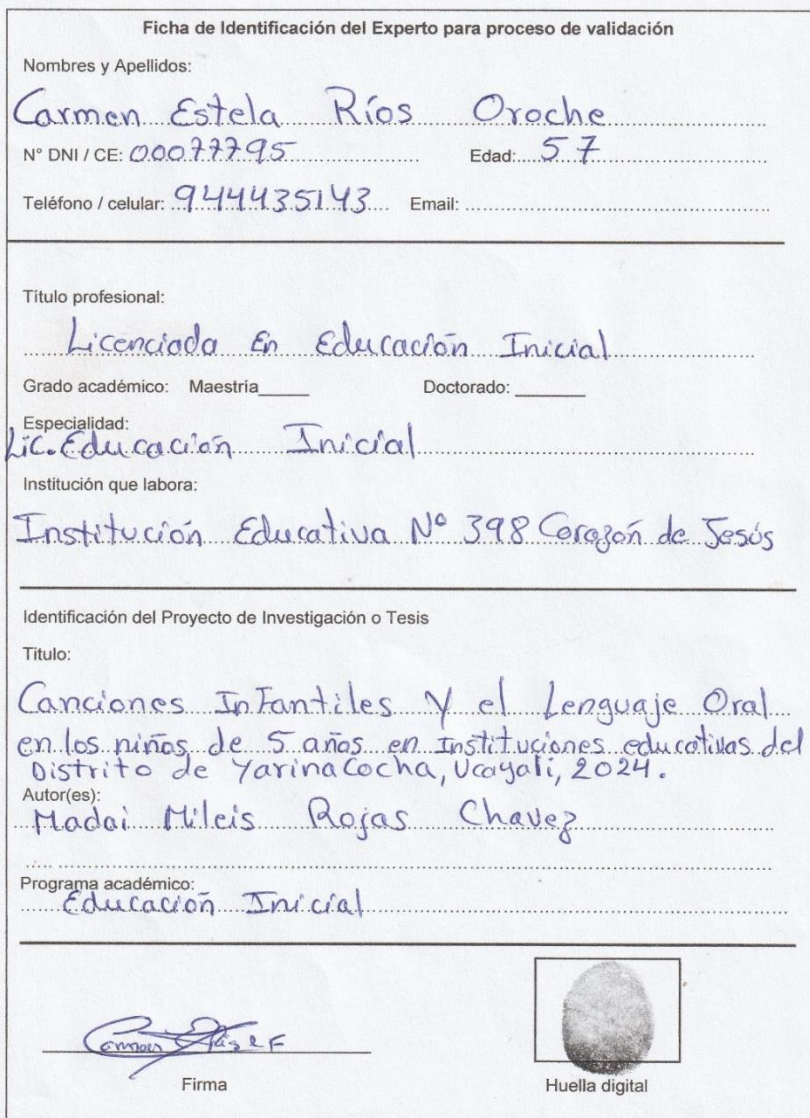 Ficha de Identificación del Experto para proceso de validación
Nombres y Apellidos:
Carmen Estela Ríos Oroche
N° DNI / CE: 00077795 Edad: 57
Teléfono / celular: 944435143 Email:
Título profesional:
Licenciada En Educación Inicial
Grado académico: Maestría_____ Doctorado: _______
Especialidad:
Lic. Educación Inicial
Institución que labora:
Institución Educativa N° 398 Corazón de Jesús
Identificación del Proyecto de Investigación o Tesis
Titulo:
Canciones Infantiles y el Lenguaje Oral
en los niños de 5 años en Instituciones educativas del
Distrito de Yarinacocha, Ucayali, 2024.
Autor(es):
Madai Mileis Rojas Chavez
Programa académico:
Educación Inicial
Firma
Huella digital